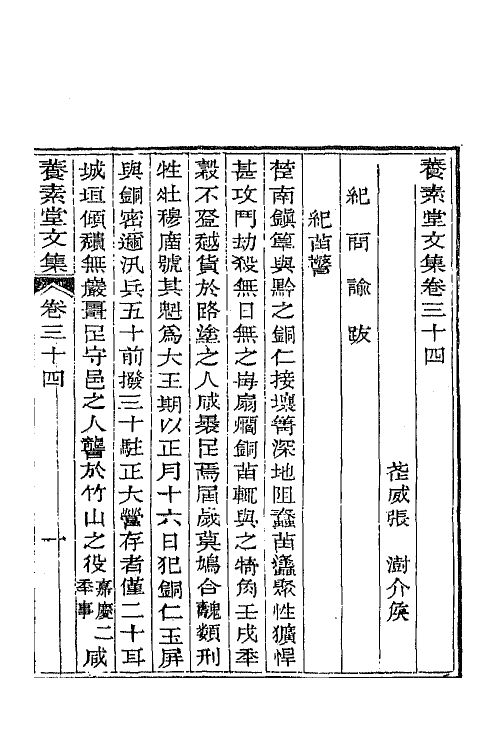 養素堂文集卷三十四
萑威張　澍介侯
紀　問　諭　跋
紀苗警
楚南鎮筸與黔之銅仁接壤箐深地阻蠢苗蟻聚性獷悍
甚攻鬥劫殺無日無之每扇爓銅苗輒與之犄角壬戌季
穀不登越貨於路塗之人咸裹足焉屆歲莫鳩合醜類刑
牲壯穆廟號其魁爲大王期以正月十六日犯銅仁玉屏
與銅密邇汛兵五十前撥三十駐正大營存者僅二十耳
城垣傾穨無巖畺足守邑之人讋於竹山之役嘉慶二季事咸
養素堂文集　卷三十四　一